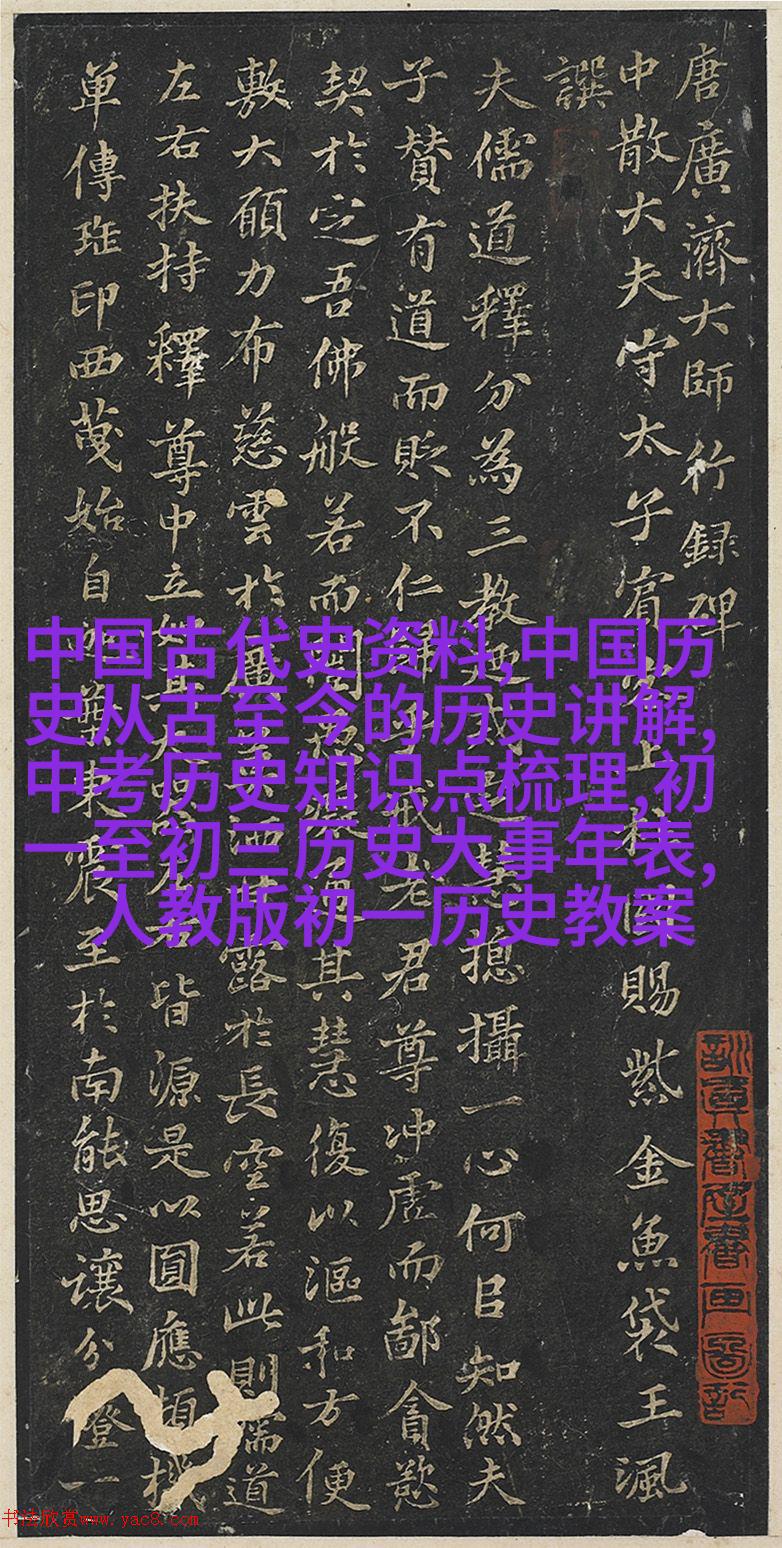 唐廣濟大師行録碑
中散大夫守太子賓上柱國賜紫金魚袋王諷
譔
夫儒道釋分為三教總攝一心何以知然夫
子贊有道而貶不仁老君尊沖虛而鄙貪慾
契於定吾佛般若而其慧復以漚和方便
敷大願力布慈雲於露於長空若此則儒道
左右扶持釋尊中立皆源是以圓應頓機
單傳班印西蔑始自東震至於南能思讓分燈一
中国古代史资料,中国历
史从古至今的历史讲解,
中考历史知识点梳理,初
一至初三历史大事年表,
人教版初一历史教案
书法欣赏www.yac8.com